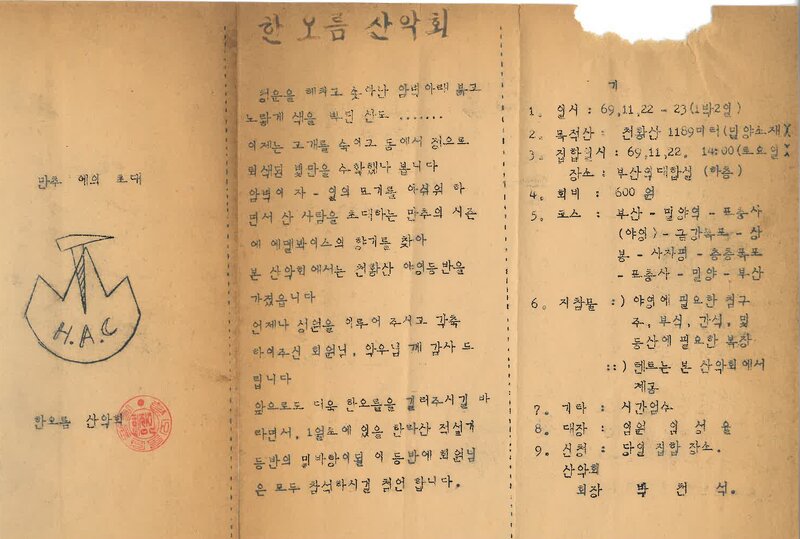 만추 에의 초대
H.A.C
한오름 산악회
한오름 산악회
청운을 헤치고 솟아난 암벽아래 붉고
노랗게 색을 뿌린 산도 .......
이제는 고개를 숙이고 동에서 정으로
퇴색된 몇만을 수확했나 봅니다
암벽에 자-일의 묘기를 아쉬워 하
면서 산 사람을 초대하는 만추의 시즌
에 에델봐이스의 향기를 찾아
본 산악회에서는 천황산 야영등반을
가졌읍니다
언제나 성원을 이루어 주시고 각축
하여주신 회원님, 악우님 께 감사 드
립니다
앞으로도 더욱 한오름을 길러주시길 바
라면서, 1월초에 있을 한라산 적설기
등반의 밑바탕이될 이 등반에 회원님
은 모두 참석하시길 첨언 합니다.
기
1. 일시 : 69,11,22 - 23(1박2일)
2. 목적산 : 천황산 1189미터(밀양소재)
3. 집합일시 : 69,11,22. 14:00(토요일)
장소 : 부산역대합실 (하층)
4. 회비 : 600 원
5. 코스 : 부산 - 밀양역 - 표충사
(야영) - 금강폭포 - 상
봉 - 사자평 - 층층폭포
- 표충사 - 밀양 - 부산
6. 지참물 :) 야영에 필요한 침구
주, 부식, 간식, 및
등산에 필요한 복장
::) 텐트는 본 산악회에서
제공
7. 기타 : 시간엄수
8. 대장 : 임원 성
9. 신청 : 당일 집합 장소.
산악회
회장 박 천 석.